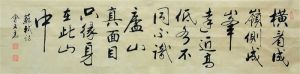 橫看成
嶺側成
峯
遠近高
低各不
同不識
廬山
真面目
只緣身
在此山
中
蘇軾詩